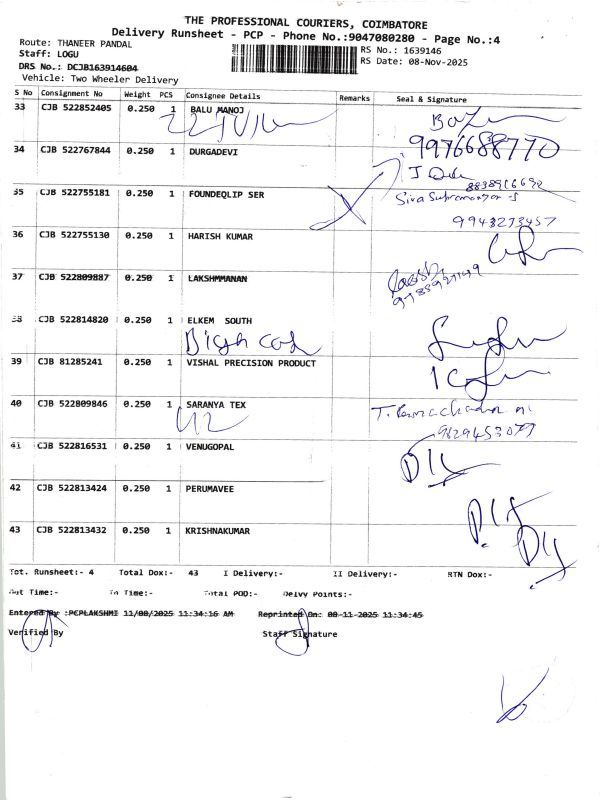 THE PROFESSIONAL COURIERS, COIMBATORE
Delivery Runsheet - PCP - Phone No.:9047080280 - Page No.:4
Route: THANEER PANDAL
RS No.: 1639146
Staff: LOGU
RS Date: 08-Nov-2025
DRS No.: DCJB163914604
Vehicle: Two Wheeler Delivery
S No Consignment No Weight PCS Consignee Details Remarks Seal & Signature
33 CJB 522852405 0.250 1 BALU MANOJ
34 CJB 522767844 0.250 1 DURGADEVI
9976688770
8838916692
35 CJB 522755181 0.250 1 FOUNDEQLIP SER
9943273457
36 CJB 522755130 0.250 1 HARISH KUMAR
37 CJB 522809887 0.250 1 LAKSHMMANAN
38 CJB 522814820 0.250 1 ELKEM SOUTH
39 CJB 81285241 0.250 1 VISHAL PRECISION PRODUCT
40 CJB 522809846 0.250 1 SARANYA TEX
41 CJB 522816531 0.250 1 VENUGOPAL
42 CJB 522813424 0.250 1 PERUMAVEE
43 CJB 522813432 0.250 1 KRISHNAKUMAR
Tot. Runsheet:- 4 Total Dox:- 43 I Delivery:- II Delivery:- RTN Dox:-
Out Time:- In Time:- Total POD:- Delvy Points:-
Entered By :PCPLAKSHMI 11/08/2025 11:34:16 AM Reprinted On: 08-11-2025 11:34:45
Verified By Staff Signature